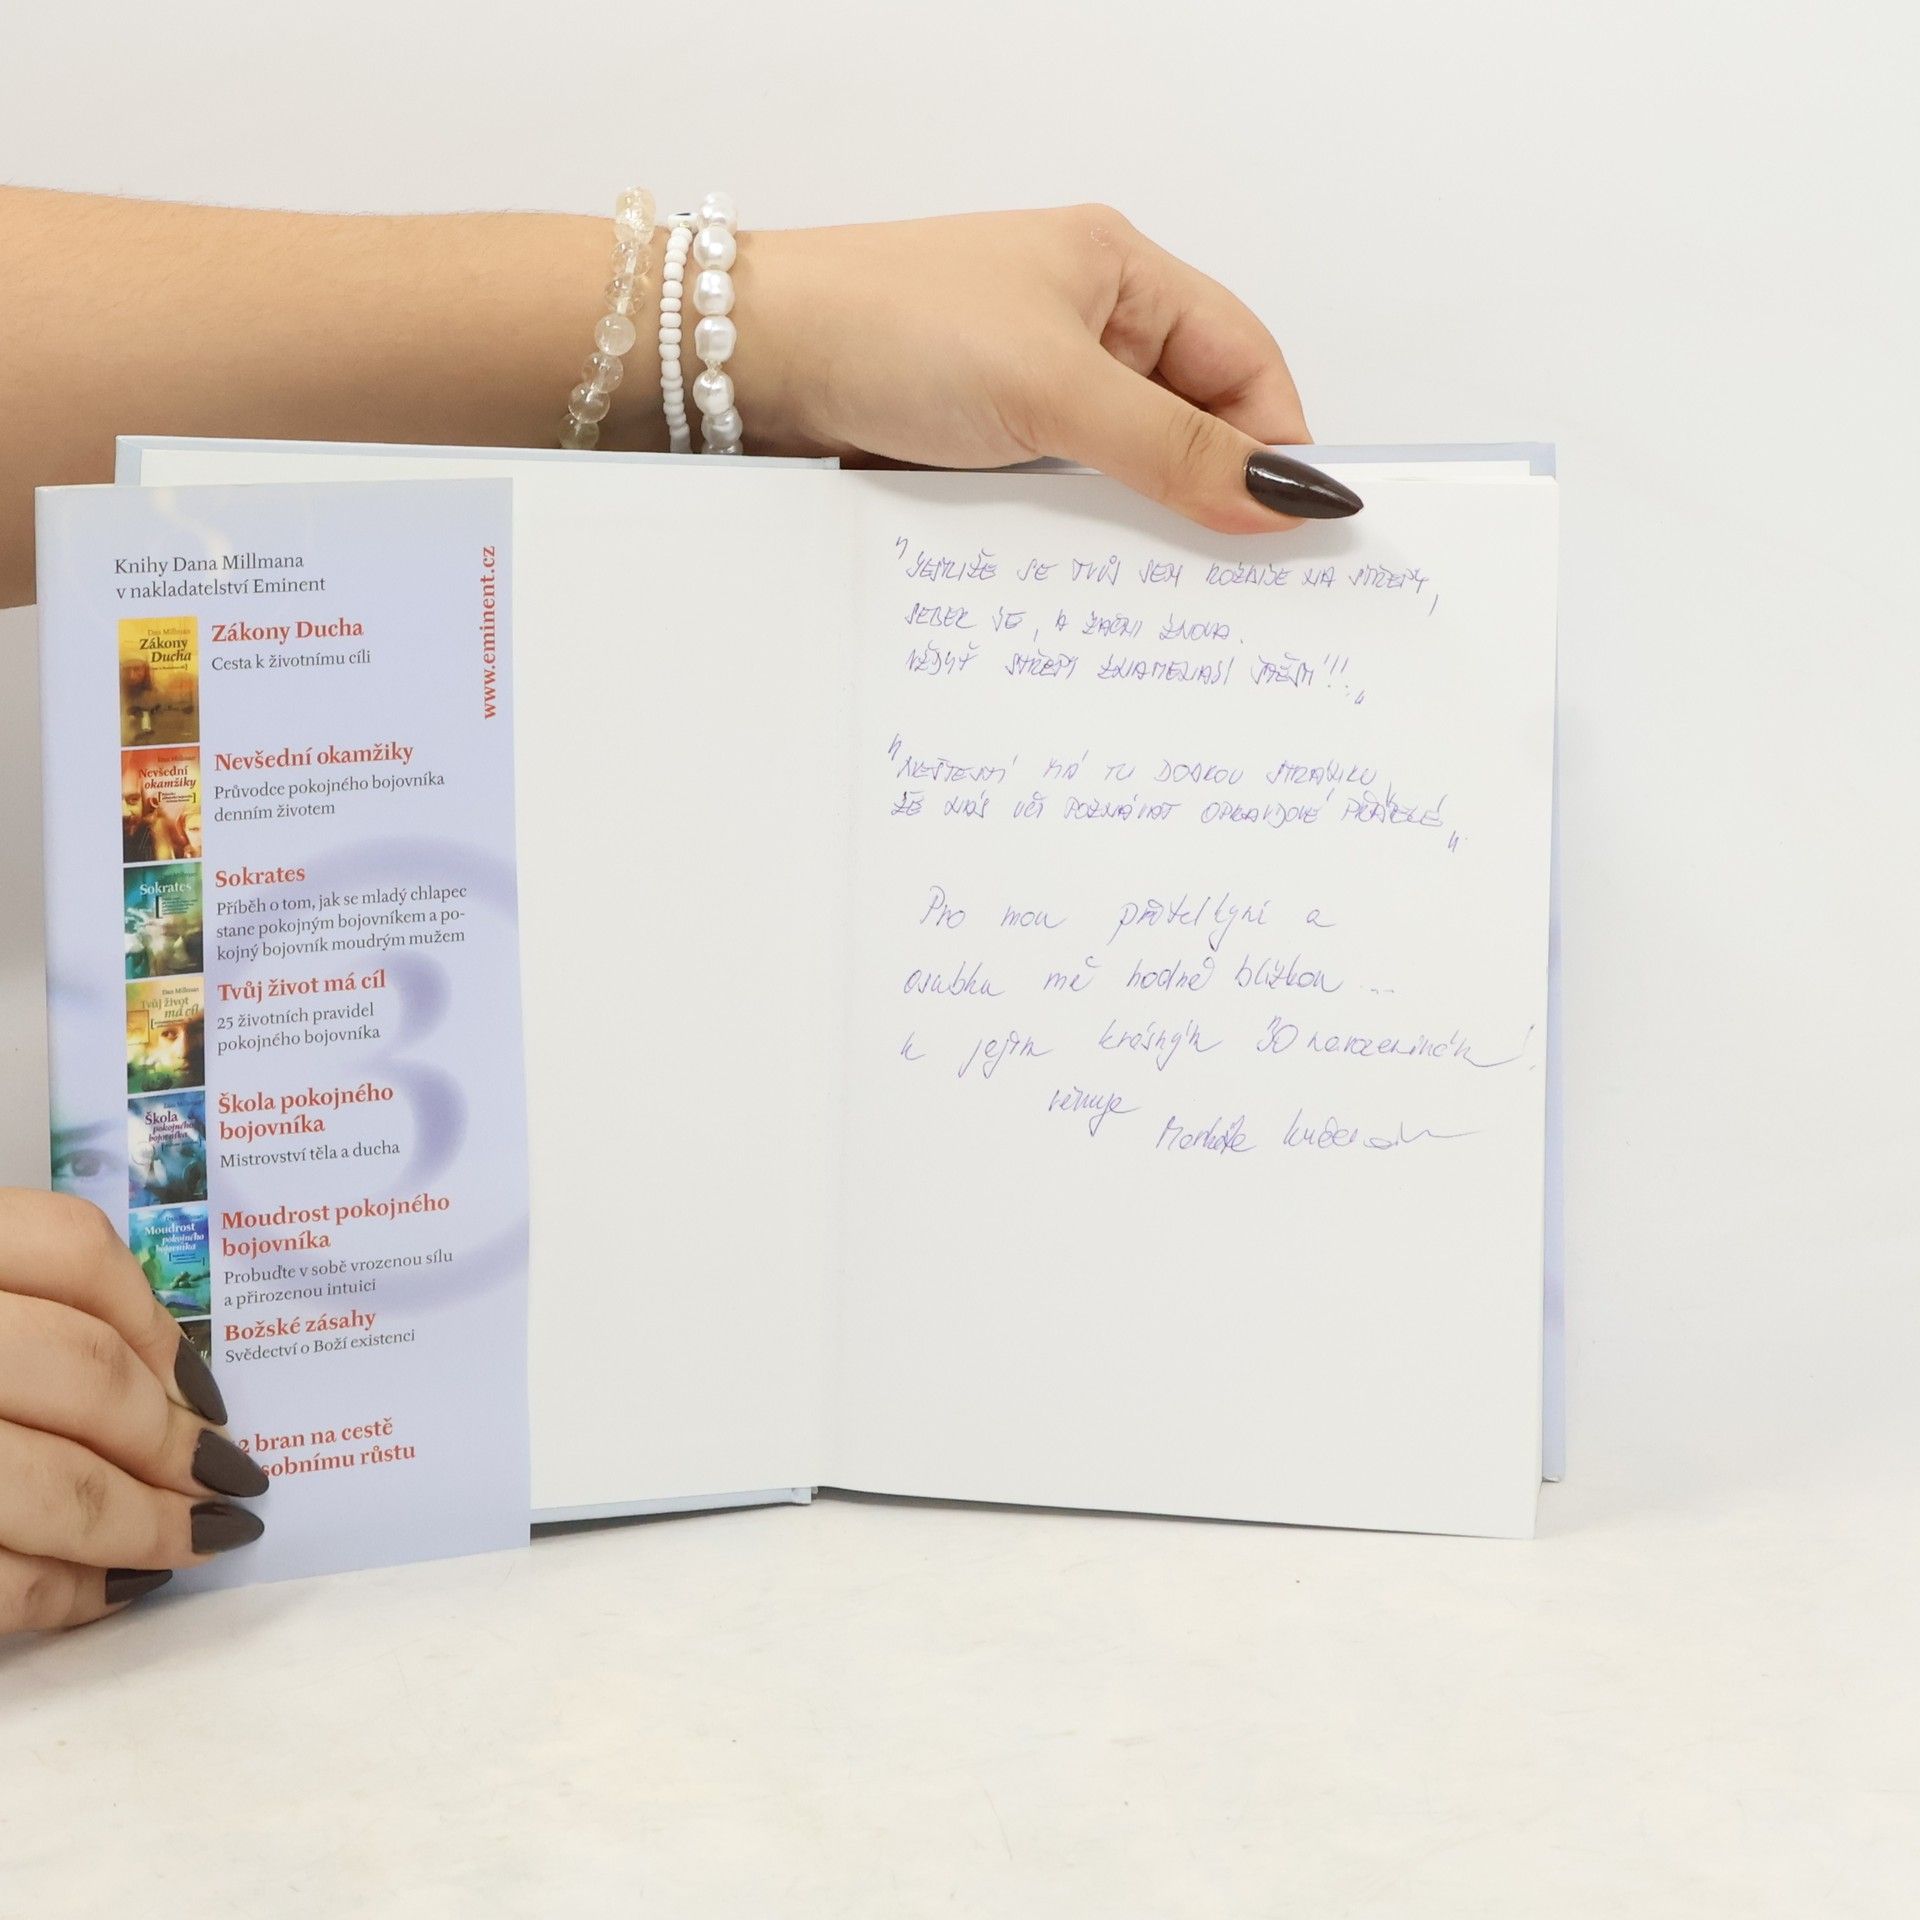 Knihy Dana Millmana
v nakladatelství Eminent
www.eminent.cz
Dan Millman
Zákony
Ducha
Zákony Ducha
Cesta k životnímu cíli
Dan Millman
Nevšední
okamžiky
Nevšední okamžiky
Průvodce pokojného bojovníka
denním životem
Sokrates
Sokrates
Příběh o tom, jak se mladý chlapec
stane pokojným bojovníkem a po-
kojný bojovník moudrým mužem
Dan Millman
Tvůj život
má cíl
Tvůj život má cíl
25 životních pravidel
pokojného bojovníka
Dan Millman
Škola
pokojného
bojovníka
Škola pokojného
bojovníka
Mistrovství těla a ducha
Dan Millman
Moudrost
pokojného
bojovníka
Moudrost pokojného
bojovníka
Probuďte v sobě vrozenou sílu
a přirozenou intuici
Božské zásahy
Svědectví o Boží existenci
2 bran na cestě
sobnímu růstu
"JESTLIŽE SE TVŮJ SEN ROZBIJE NA STŘEPY,
SEBER JE, A ZAČNI ZNOVA.
VŽDYŤ STŘEPY ZNAMENAJÍ ŠTĚSTÍ!!!"
"NEŠTESTÍ MÁ TU DOBROU STRÁNKU,
ŽE NÁS UČÍ POZNÁVAT OPRAVDOVÉ PŘÁTELÉ".
Pro mou přítelkyni a
osubku mě hodně blízkou ...
k jejím krásným 30 narozeninám!
věnuje
Markéta